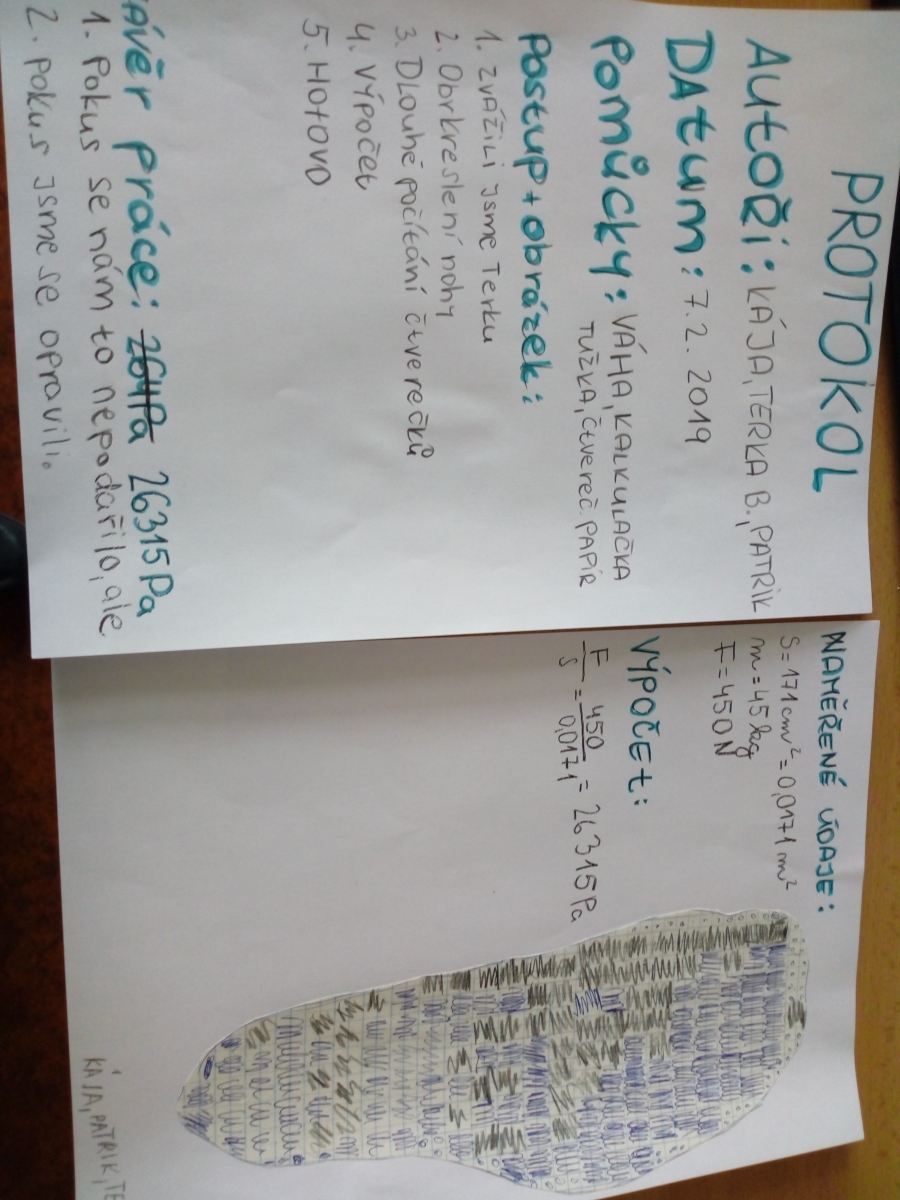 PROTOKOL
AUTOŘI: KÁJA, TERKA B., PATRIK
DATUM: 7. 2. 2019
POMŮCKY: VÁHA, KALKULAČKA
TUŽKA, čtvereč. PAPÍR
POSTUP + obrázek:
1. zvážili jsme Terku
2. Obrkreslení nohy
3. Dlouhé počítání čtverečků
4. Výpočet
5. HOTOVO
ÁVĚR Práce: 264Pa 26315 Pa
1. Pokus se nám to nepodařilo, ale
2. pokus jsme se opravili.
NAMĚŘENÉ ÚDAJE:
S = 171 cm² = 0,0171 m²
m = 45 kg
F = 450 N
VÝPOČET:
F/S = 450/0,0171 = 26315 Pa
KÁJA, PATRIK, TE